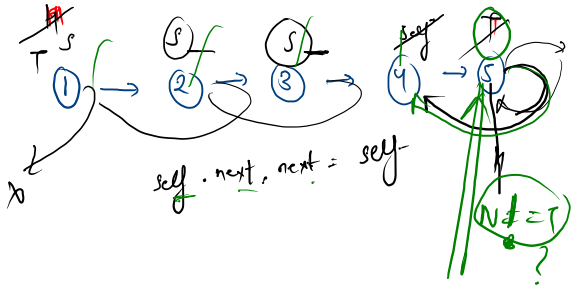 T S
S
S
self
T
1 → 2 → 3 → 4 → 5
self . next . next = self
N != = T
?